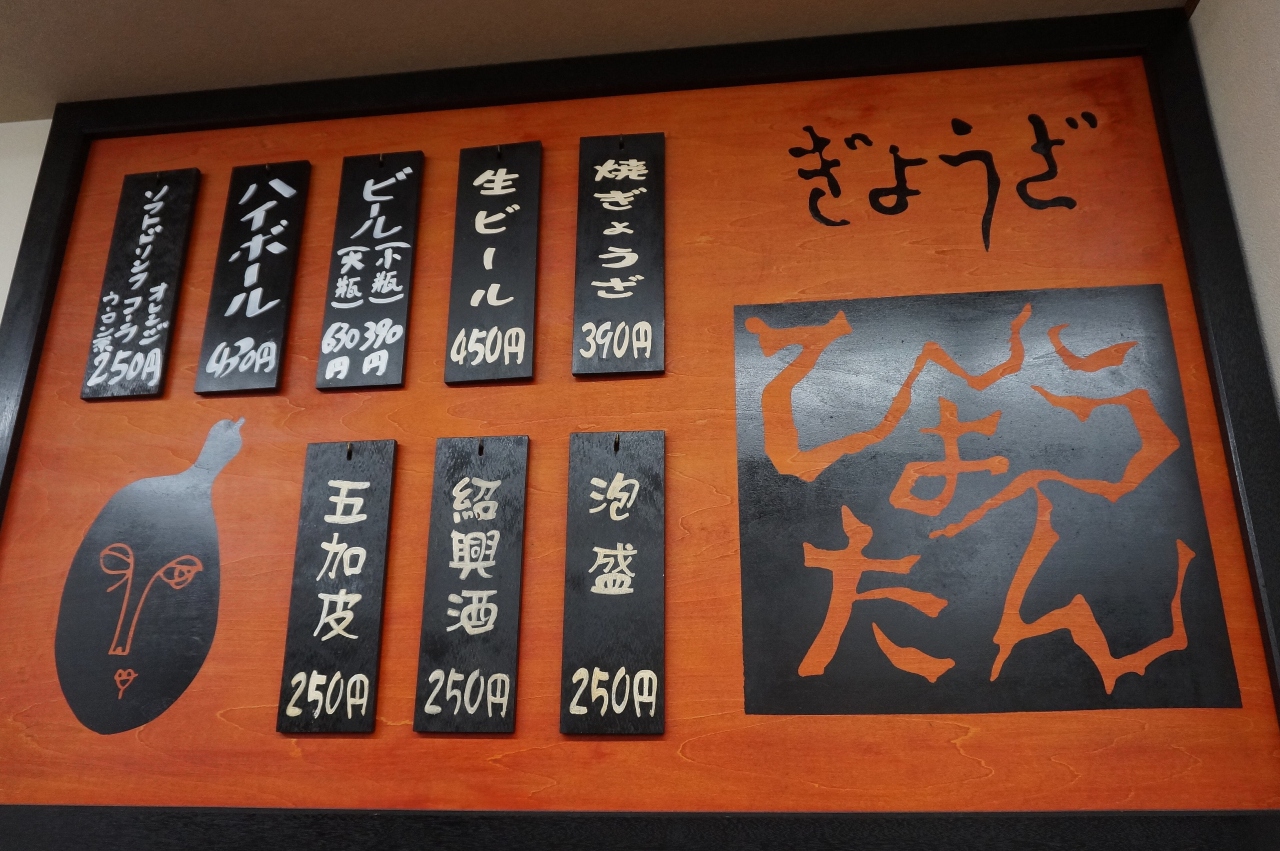 ぎょうざ
ひょうたん
焼ぎょうざ
390円
生ビール
450円
ビール(小瓶)390円
(大瓶)630円
ハイボール
450円
ソフトドリンク
オレンジ
コーラ
ウーロン茶
250円
泡盛
250円
紹興酒
250円
五加皮
250円